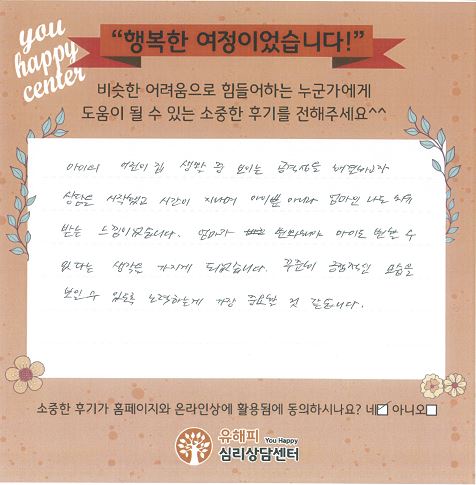 you
happy
center
“행복한 여정이었습니다!”
비슷한 어려움으로 힘들어하는 누군가에게
도움이 될 수 있는 소중한 후기를 전해주세요^^
아이의 어린이집 생활 중 보이는 공격성을 해결하고자
상담을 시작했고 시간이 지나며 아이뿐 아니라 엄마인 나도 치유
받는 느낌이었습니다. 엄마가 변화해야 아이도 변할 수
있다는 생각을 가지게 되었습니다. 꾸준히 긍정적인 모습을
보일 수 있도록 노력하는게 가장 중요할 것 같습니다.
소중한 후기가 홈페이지와 온라인상에 활용됨에 동의하시나요? 네☑ 아니오☐
유해피 You Happy
심리상담센터